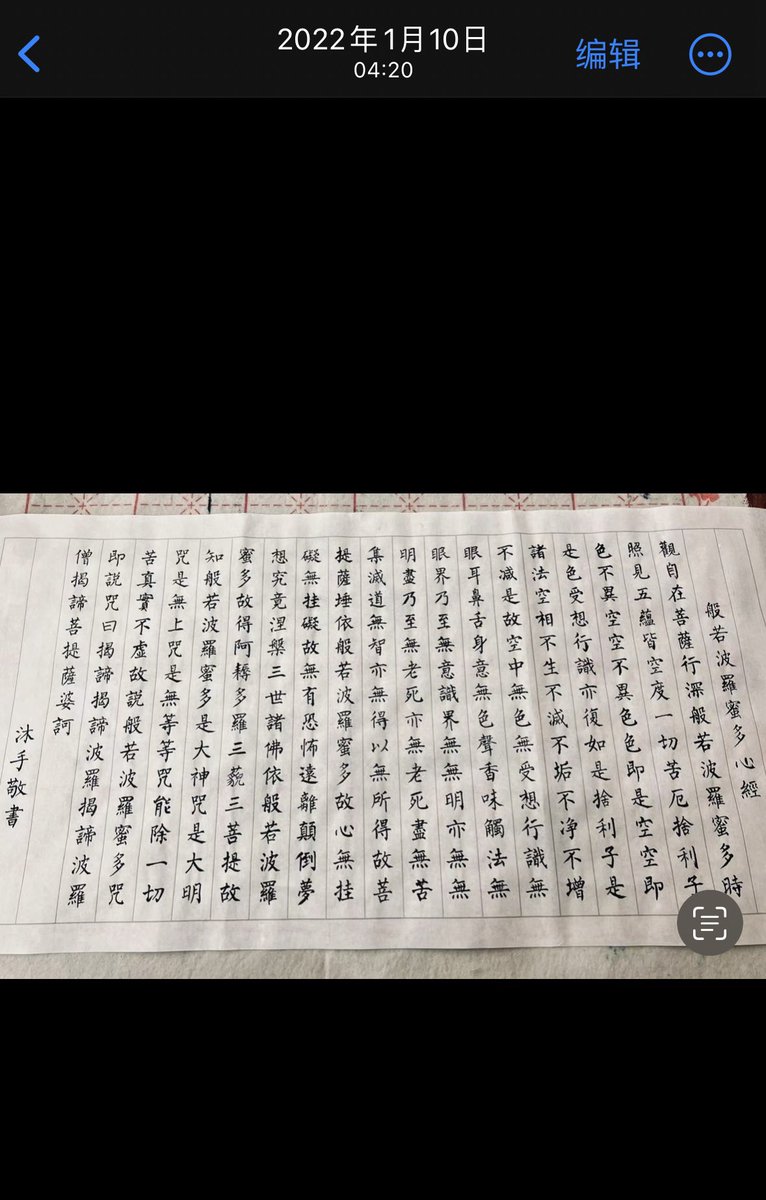 2022年1月10日
04:20
编辑
般若波羅蜜多心經
觀自在菩薩行深般若波羅蜜多時
照見五蘊皆空度一切苦厄捨利子
色不異空空不異色色即是空空即
是色受想行識亦復如是捨利子是
諸法空相不生不滅不垢不净不增
不减是故空中無色無受想行識無
眼耳鼻舌身意無色聲香味觸法無
眼界乃至無意識界無無明亦無無
明盡乃至無老死亦無老死盡無苦
集滅道無智亦無得以無所得故菩
提薩埵依般若波羅蜜多故心無挂
礙無挂礙故無有恐怖遠離顛倒夢
想究竟涅槃三世諸佛依般若波羅
蜜多故得阿耨多羅三藐三菩提故
知般若波羅蜜多是大神咒是大明
咒是無上咒是無等等咒能除一切
苦真實不虛故説般若波羅蜜多咒
即説咒曰揭諦揭諦波羅揭諦波羅
僧揭諦菩提薩婆訶
沐手敬書